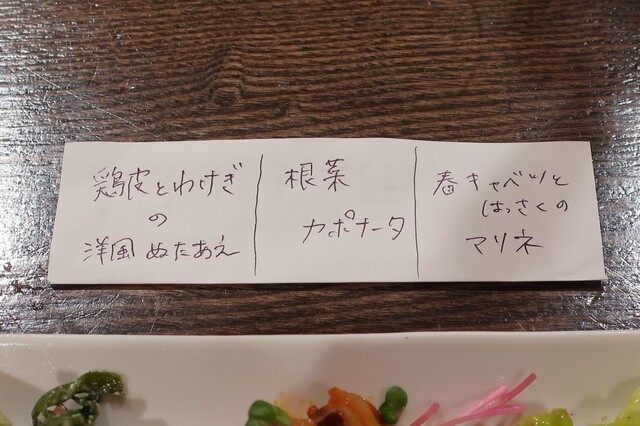 鶏皮とわけぎ
の
洋風ぬたあえ
根菜
カポナータ
春キャベツと
はっさくの
マリネ